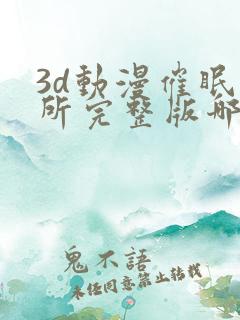 3d動漫催眠
所完整版哪
鬼不語
未经同意禁止转载